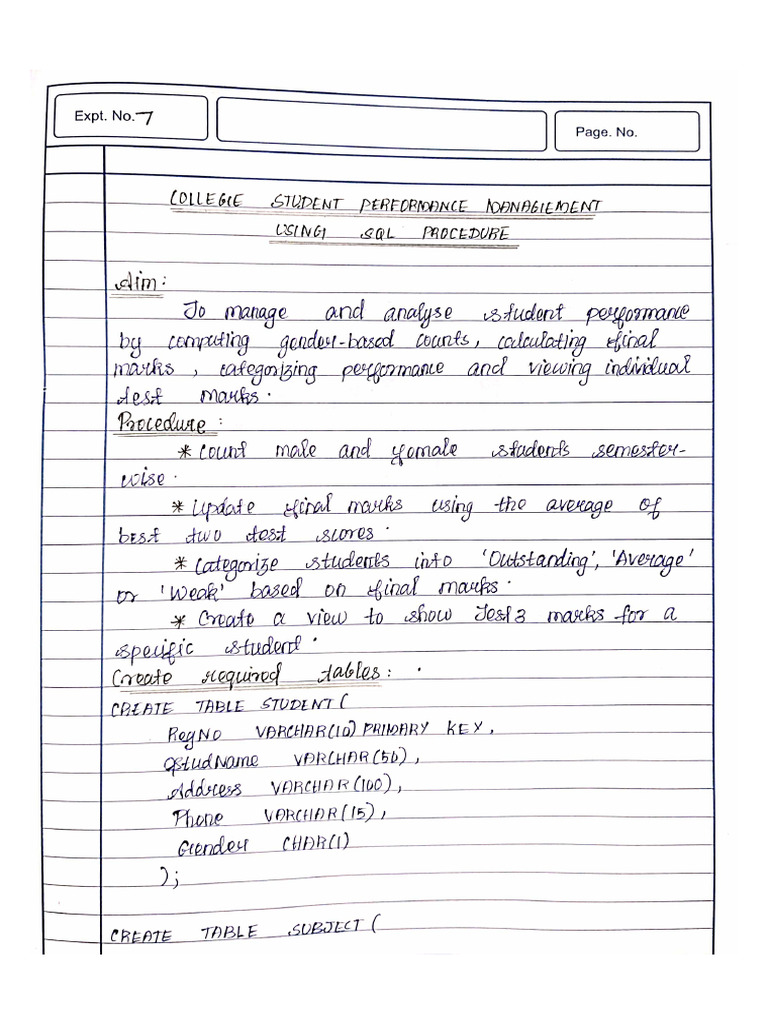 Expt. No. 7
Page. No.
COLLEGE STUDENT PERFORMANCE MANAGEMENT
USING SQL PROCEDURE
Aim:
To manage and analyse student performance
by computing gender-based counts, calculating final
marks, categorizing performance and viewing individual
test marks.
Procedure:
* Count male and female students semester-
wise.
* Update final marks using the average of
best two test scores.
* Categorize students into 'Outstanding', 'Average'
or 'Weak' based on final marks.
* Create a view to show Test 3 marks for a
specific student.
Create required tables:
CREATE TABLE STUDENT(
RegNo VARCHAR(10) PRIMARY KEY,
StudName VARCHAR(50),
Address VARCHAR(100),
Phone VARCHAR(15),
Gender CHAR(1)
);
CREATE TABLE SUBJECT(